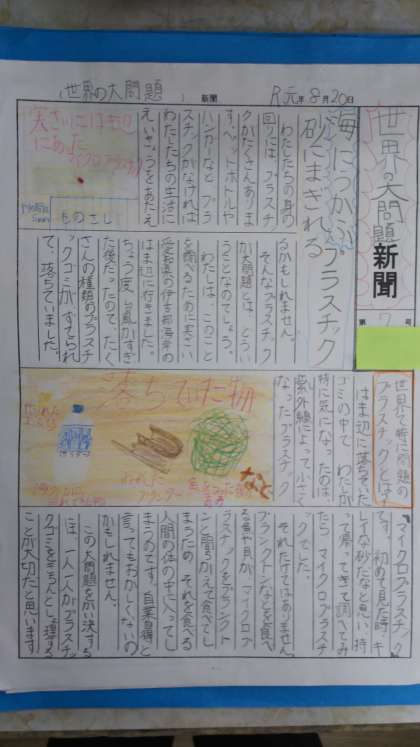 世界の大問題
新聞
R元年8月20日
世界の大問題
新聞
第
海にうかぶプラスチック
砂にまぎれる
わたしたちの身の
回りには、プラスチッ
クがたくさんありま
す。ペットボトルや
ハンガーなど、プラ
スチックがなければ
わたしたちの生活に
えいきょうをあたえ
実さいにはま辺
にあった
マイクロプラスチック
ものさし
るかもしれません。
そんなプラスチック
が大問題とは、どうい
うことなのでしょう。
わたしは、このこと
を調べるために実さい
はま辺に行きました。
ちょう度、台風がすぎ
た後だったので、たく
さんの種類のプラスチ
ックゴミがすてられ
て、落ちていました。
世界で特に問題の
プラスチックとは?
はま辺に落ちていた
ゴミの中で、わたしが
特に気になったのは、
紫外線によって、小さく
なったプラスチック
落ちていた物
など
マイクロプラスチック
です。初めて見た時、キ
レイな砂だなと思い、持
って帰ってきて調べてみ
たら、マイクロプラスチ
ックでした。
それだけではありません。
プランクトンなどを食べ
る魚や貝が、マイクロプ
ラスチックをプランクト
ンと間ちがえて食べてし
まうため、それを食べる
人間の体の中に入ってし
まうのです。自業自得と
言ってもおかしくないの
かもしれません。
この大問題をかい決する
には、一人一人がプラスチッ
クゴミをきちんとしょ理する
ことが大切だと思います。